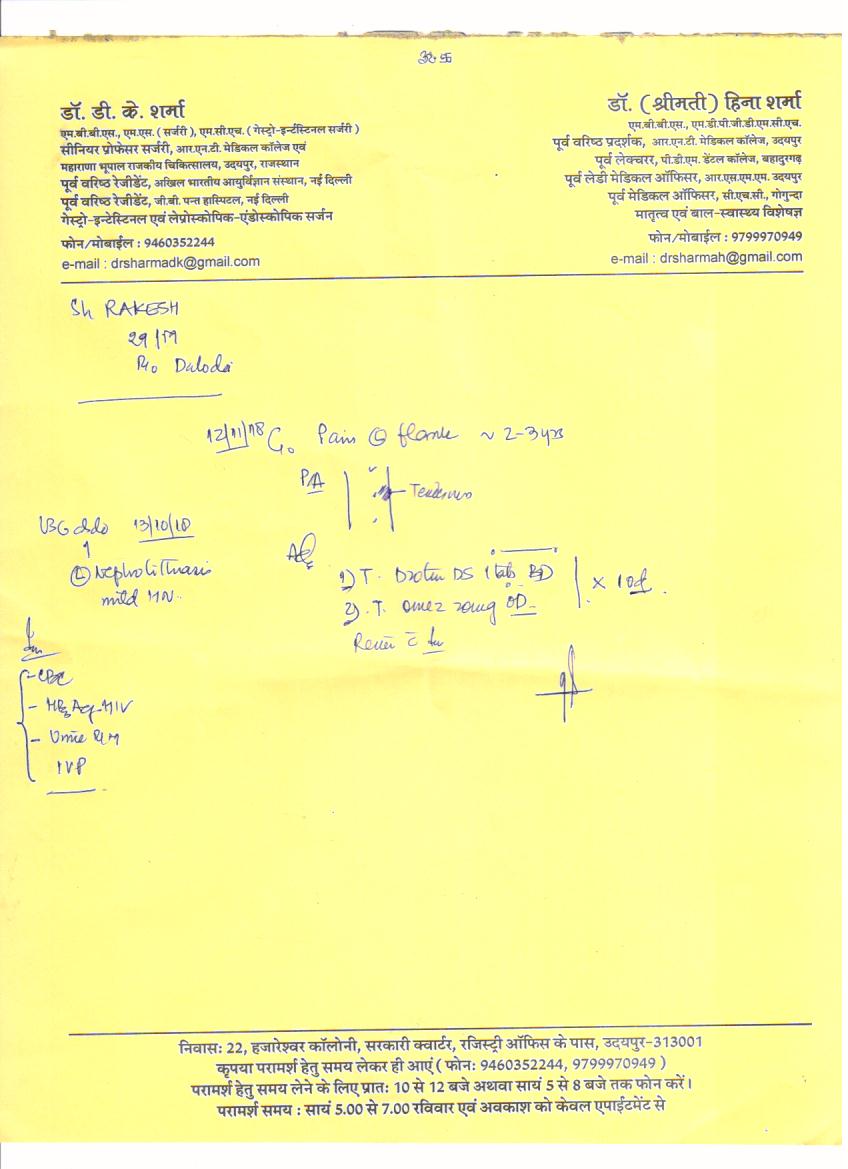 डॉ. डी. के. शर्मा
एम.बी.बी.एस., एम.एस. ( सर्जरी ), एम.सी.एच. ( गेस्ट्रो-इन्टेस्टिनल सर्जरी )
सीनियर प्रोफेसर सर्जरी, आर.एन.टी. मेडिकल कॉलेज एवं
महाराणा भूपाल राजकीय चिकित्सालय, उदयपुर, राजस्थान
पूर्व वरिष्ठ रेजीडेंट, अखिल भारतीय आयुर्विज्ञान संस्थान, नई दिल्ली
पूर्व वरिष्ठ रेजीडेंट, जी.बी. पन्त हास्पिटल, नई दिल्ली
गेस्ट्रो-इन्टेस्टिनल एवं लेप्रोस्कोपिक-एंडोस्कोपिक सर्जन
फोन/मोबाईल : 9460352244
e-mail : drsharmadk@gmail.com
डॉ. (श्रीमती) हिना शर्मा
एम.बी.बी.एस., एम.डी.पी.जी.डी.एम.सी.एच.
पूर्व वरिष्ठ प्रदर्शक, आर.एन.टी. मेडिकल कॉलेज, उदयपुर
पूर्व लेक्चरर, पी.डी.एम. डेंटल कॉलेज, बहादुरगढ़
पूर्व लेडी मेडिकल ऑफिसर, आर.एस.एम.एम. उदयपुर
पूर्व मेडिकल ऑफिसर, सी.एच.सी., गोगुन्दा
मातृत्व एवं बाल-स्वास्थ्य विशेषज्ञ
फोन/मोबाईल : 9799970949
e-mail : drsharmah@gmail.com
Sh RAKESH
29/M
R/o Daloda
12/11/18 C/o Pain (L) flank ~ 2-3 yrs
P/A
Tenderness
USG 13/10/18
(L) Nephrolithiasis
mild HN
Adv
1) T. Drotin DS 1 tab BD
2) T. Omez 20mg OD
x 10d
Review c
- CBC
- HBsAg - HIV
- Urine R/M
IVP
निवास: 22, हजारेश्वर कॉलोनी, सरकारी क्वार्टर, रजिस्ट्री ऑफिस के पास, उदयपुर-313001
कृपया परामर्श हेतु समय लेकर ही आएं ( फोन: 9460352244, 9799970949 )
परामर्श हेतु समय लेने के लिए प्रात: 10 से 12 बजे अथवा सायं 5 से 8 बजे तक फोन करें।
परामर्श समय : सायं 5.00 से 7.00 रविवार एवं अवकाश को केवल एपाईंटमेंट से